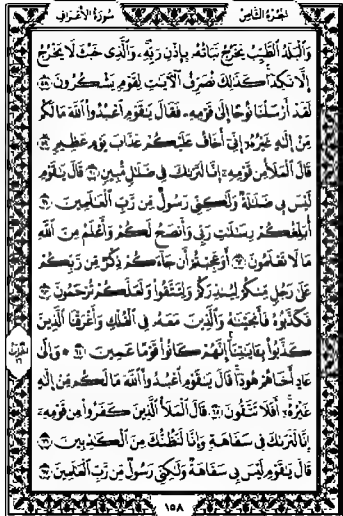 الجزء الثامن
سورة الأعراف
وَٱلْبَلَدُ ٱلطَّيِّبُ يَخْرُجُ نَبَاتُهُۥ بِإِذْنِ رَبِّهِۦ وَٱلَّذِى خَبُثَ لَا يَخْرُجُ
إِلَّا نَكِدًا كَذَٰلِكَ نُصَرِّفُ ٱلْـَٔايَٰتِ لِقَوْمٍ يَشْكُرُونَ ٥٨
لَقَدْ أَرْسَلْنَا نُوحًا إِلَىٰ قَوْمِهِۦ فَقَالَ يَٰقَوْمِ ٱعْبُدُوا۟ ٱللَّهَ مَا لَكُم
مِّنْ إِلَٰهٍ غَيْرُهُۥٓ إِنِّىٓ أَخَافُ عَلَيْكُمْ عَذَابَ يَوْمٍ عَظِيمٍ ٥٩
قَالَ ٱلْمَلَأُ مِن قَوْمِهِۦٓ إِنَّا لَنَرَىٰكَ فِى ضَلَٰلٍ مُّبِينٍ ٦٠ قَالَ يَٰقَوْمِ
لَيْسَ بِى ضَلَٰلَةٌ وَلَٰكِنِّى رَسُولٌ مِّن رَّبِّ ٱلْعَٰلَمِينَ ٦١
أُبَلِّغُكُمْ رِسَٰلَٰتِ رَبِّى وَأَنصَحُ لَكُمْ وَأَعْلَمُ مِنَ ٱللَّهِ
مَا لَا تَعْلَمُونَ ٦٢ أَوَعَجِبْتُمْ أَن جَآءَكُمْ ذِكْرٌ مِّن رَّبِّكُمْ
عَلَىٰ رَجُلٍ مِّنكُمْ لِيُنذِرَكُمْ وَلِتَتَّقُوا۟ وَلَعَلَّكُمْ تُرْحَمُونَ ٦٣
فَكَذَّبُوهُ فَأَنجَيْنَٰهُ وَٱلَّذِينَ مَعَهُۥ فِى ٱلْفُلْكِ وَأَغْرَقْنَا ٱلَّذِينَ
كَذَّبُوا۟ بِـَٔايَٰتِنَآ إِنَّهُمْ كَانُوا۟ قَوْمًا عَمِينَ ٦٤ ۞ وَإِلَىٰ
عَادٍ أَخَاهُمْ هُودًا قَالَ يَٰقَوْمِ ٱعْبُدُوا۟ ٱللَّهَ مَا لَكُم مِّنْ إِلَٰهٍ
غَيْرُهُۥٓ أَفَلَا تَتَّقُونَ ٦٥ قَالَ ٱلْمَلَأُ ٱلَّذِينَ كَفَرُوا۟ مِن قَوْمِهِۦٓ
إِنَّا لَنَرَىٰكَ فِى سَفَاهَةٍ وَإِنَّا لَنَظُنُّكَ مِنَ ٱلْكَٰذِبِينَ ٦٦
قَالَ يَٰقَوْمِ لَيْسَ بِى سَفَاهَةٌ وَلَٰكِنِّى رَسُولٌ مِّن رَّبِّ ٱلْعَٰلَمِينَ ٦٧
١٥٨